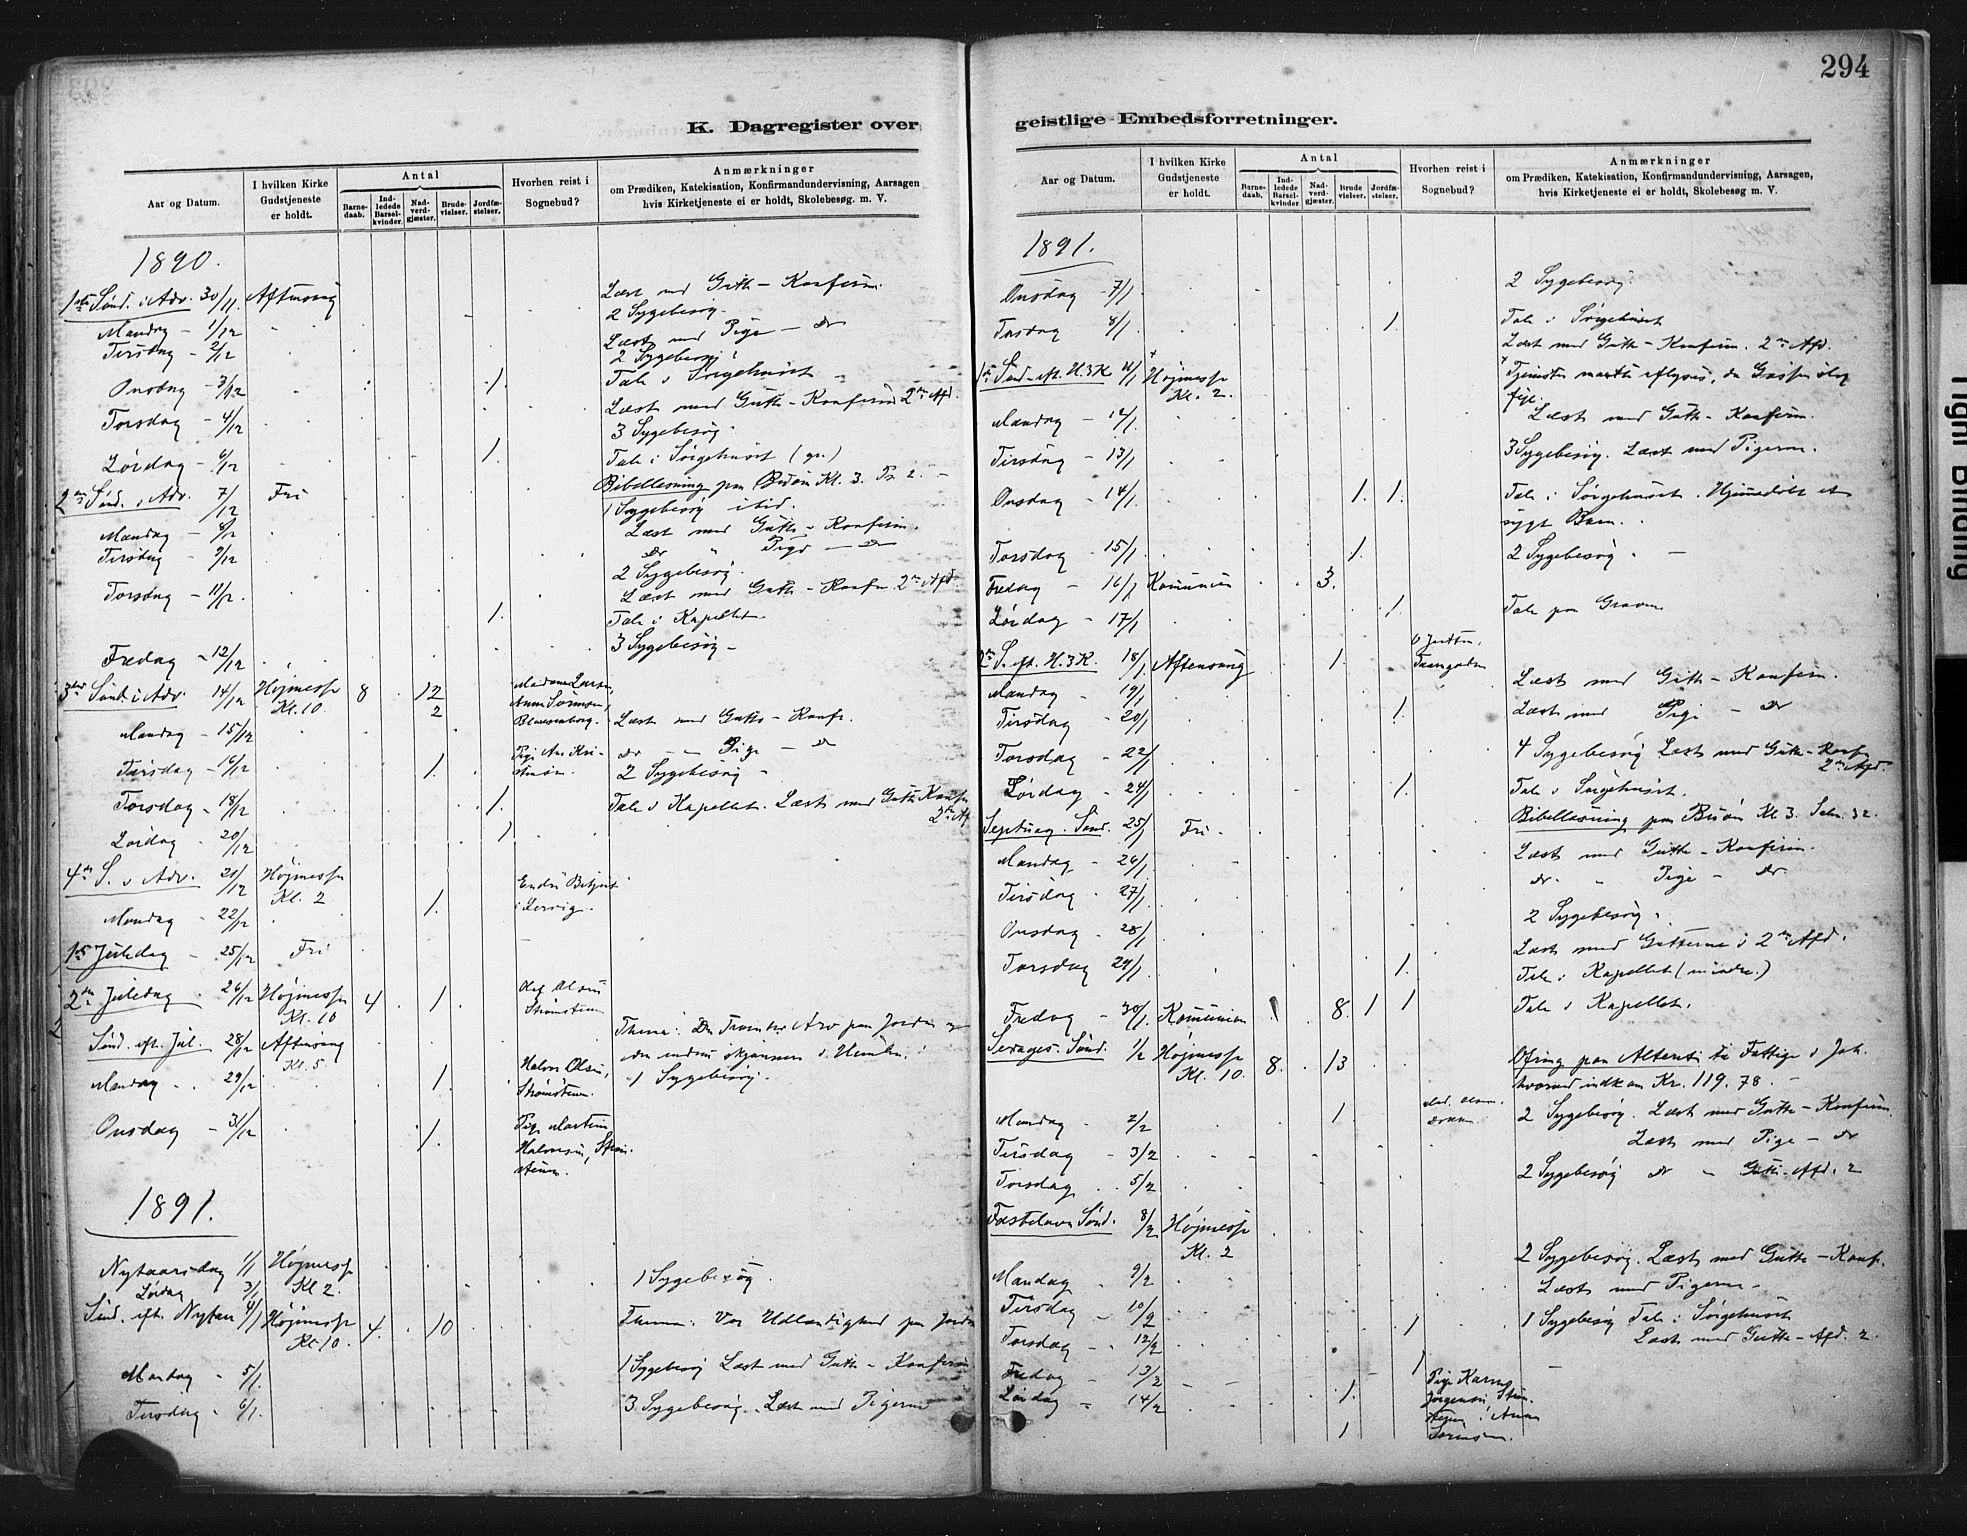 294
K. Dagregister over
Aar og Datum.
I hvilken Kirke Gudstjeneste er holdt.
Antal
Barnedaab.
Indledede Barselkvinder.
Nadverdgjæster.
Brudevielser.
Jordfæstelser.
Hvorhen reist i Sognebud?
Anmærkninger
om Prædiken, Katekisation, Konfirmandundervisning, Aarsagen
hvis Kirketjeneste ei er holdt, Skolebesøg. m. V.
1890.
1ste Sønd. i Adv. 30/11 Aftensang Læst med Gutte-Konfirm.
Mandag - 1/12 2 Sygebesøg.
Tirsdag - 2/12 Læst med Pige - do
2 Sygebesøg
Onsdag - 3/12 1. Tale i Sørgehuset
Torsdag - 4/12 Læst med Gutte-Konfirm 2den Afd.
3 Sygebesøg.
Lørdag - 6/12 1. Tale i Sørgehuset (gr.)
2den Sønd. i Adv. 7/12 Fri Bibellæsning paa Kl. 3.
1 Sygebesøg
Mandag - 8/12 Læst med Gutte-Konfirm.
Tirsdag - 9/12 do " Pige - do
2 Sygebesøg.
Torsdag - 11/12. Læst med Gutte-Konfirm 2den Afd.
1. Tale i Kapellet
Fredag - 12/12 3 Sygebesøg -
3die Sønd. i Adv. 14/12 Højmesse Kl. 10. 8 12 2 Madam Larsen,
Mandag - 15/12 Læst med Gutte-Konf.
Tirsdag - 16/12 1. Pige do - - Pige - do
2 Sygebesøg -
Torsdag - 18/12 1. Tale i Kapellet. Læst med Gutte Konf 2den Af
Lørdag - 20/12 1
4de S. i Adv. 21/12 Højmesse Kl. 2
Mandag - 22/12 1.
1ste Juledag - 25/12 Fri
2den Juledag 26/12 Højmesse Kl. 10 4 1. Olsen Strømsteen
Sønd. eft. Jul. 28/12 Aftensang Kl. 5 Thema:
Mandag 29/12 1. Halvor Olsen, Strømsteen. 1 Sygebesøg.
Onsdag - 31/12 1. Pige Halvorsen,
1891.
Nytaarsdag 1/1 Højmesse Kl 2.
Lørdag 3/1 1 Sygebesøg.
Sønd. eft. Nytaar 4/1 Højmesse Kl 10. 4. 10 Thema: Vor Udlændighed paa Jorden
Mandag - 5/1. 1 Sygebesøg Læst med Gutte-Konfirm
Tirsdag - 6/1. 3 Sygebesøg. Læst med Pigerne
geistlige Embedsforretninger.
Aar og Datum.
I hvilken Kirke Gudstjeneste er holdt.
Antal
Barnedaab.
Indledede Barselkvinder.
Nadverdgjæster.
Brudevielser.
Jordfæstelser.
Hvorhen reist i Sognebud?
Anmærkninger
om Prædiken, Katekisation, Konfirmandundervisning, Aarsagen,
hvis Kirketjeneste ei er holdt, Skolebesøg m. V.
1891.
Onsdag - 7/1 2 Sygebesøg.
Torsdag 8/1 1. Tale i Sørgehuset
Læst med Gutte-Konfirm. 2den Afd.
1ste Sønd. eft. H.3K 11/1 + Højmesse Kl. 2. + Tjenesten maatte aflyses, da
Mandag - 12/1 Læst med Gutte-Konfirm.
Tirsdag - 13/1 3 Sygebesøg. Læst med Pigerne.
Onsdag - 14/1 1. 1. Tale i Sørgehuset. Hjemmedøbt et
sygt Barn.
Torsdag - 15/1 1. 2 Sygebesøg. -
Fredag - 16/1 Komunion 3.
Lørdag - 17/1 1. Tale paa Graven
2den S. eft. H.3K. 18/1 Aftensang 1.
Mandag - 19/1 Læst med Gutte-Konfirm.
Tirsdag - 20/1 1. Læst med Pige - do
Torsdag - 22/1 4 Sygebesøg Læst med Gutte-Konf 2den Afd.
Lørdag - 24/1 1. Tale i Sørgehuset.
Septuag. Sønd. 25/1 Fri - Bibellæsning paa Kl 3.
Mandag - 26/1 Læst med Gutte-Konfirm.
Tirsdag - 27/1 do. " Pige - do
Onsdag - 28/1 2 Sygebesøg.
Læst med Gutterne i 2den Afd.
Torsdag 29/1 1. Tale i Kapellet (mindre.)
Fredag - 30/1. Komunion 1 8. 1 1 Tale i Kapellet.
Sexages. Sønd. 1/2 Højmesse Kl. 10. 8. 13 Ofring paa Alteret til Fattige i Joh.
hvorved indkom Kr. 119.78. -
Mandag - 2/2 1 2 Sygebesøg. Læst med Gutte-Konfirm
Tirsdag - 3/2 Læst med Pige - do
Torsdag 5/2 2 Sygebesøg do - Gutte-Afd. 2
Fastelavns Sønd. 8/2 Højmesse Kl. 2
Mandag 9/2 2 Sygebesøg. Læst med Gutte-Konf.
Tirsdag - 10/2 Læst med Pigerne -
Torsdag - 12/2 1 1 Sygebesøg Tale i Sørgehuset
Læst med Gutte-Afd. 2.
Fredag - 13/2 1
Lørdag - 14/2 1. Pige Karen Jørgensen,
1 Anna Sørensen.
Tigni Bildning